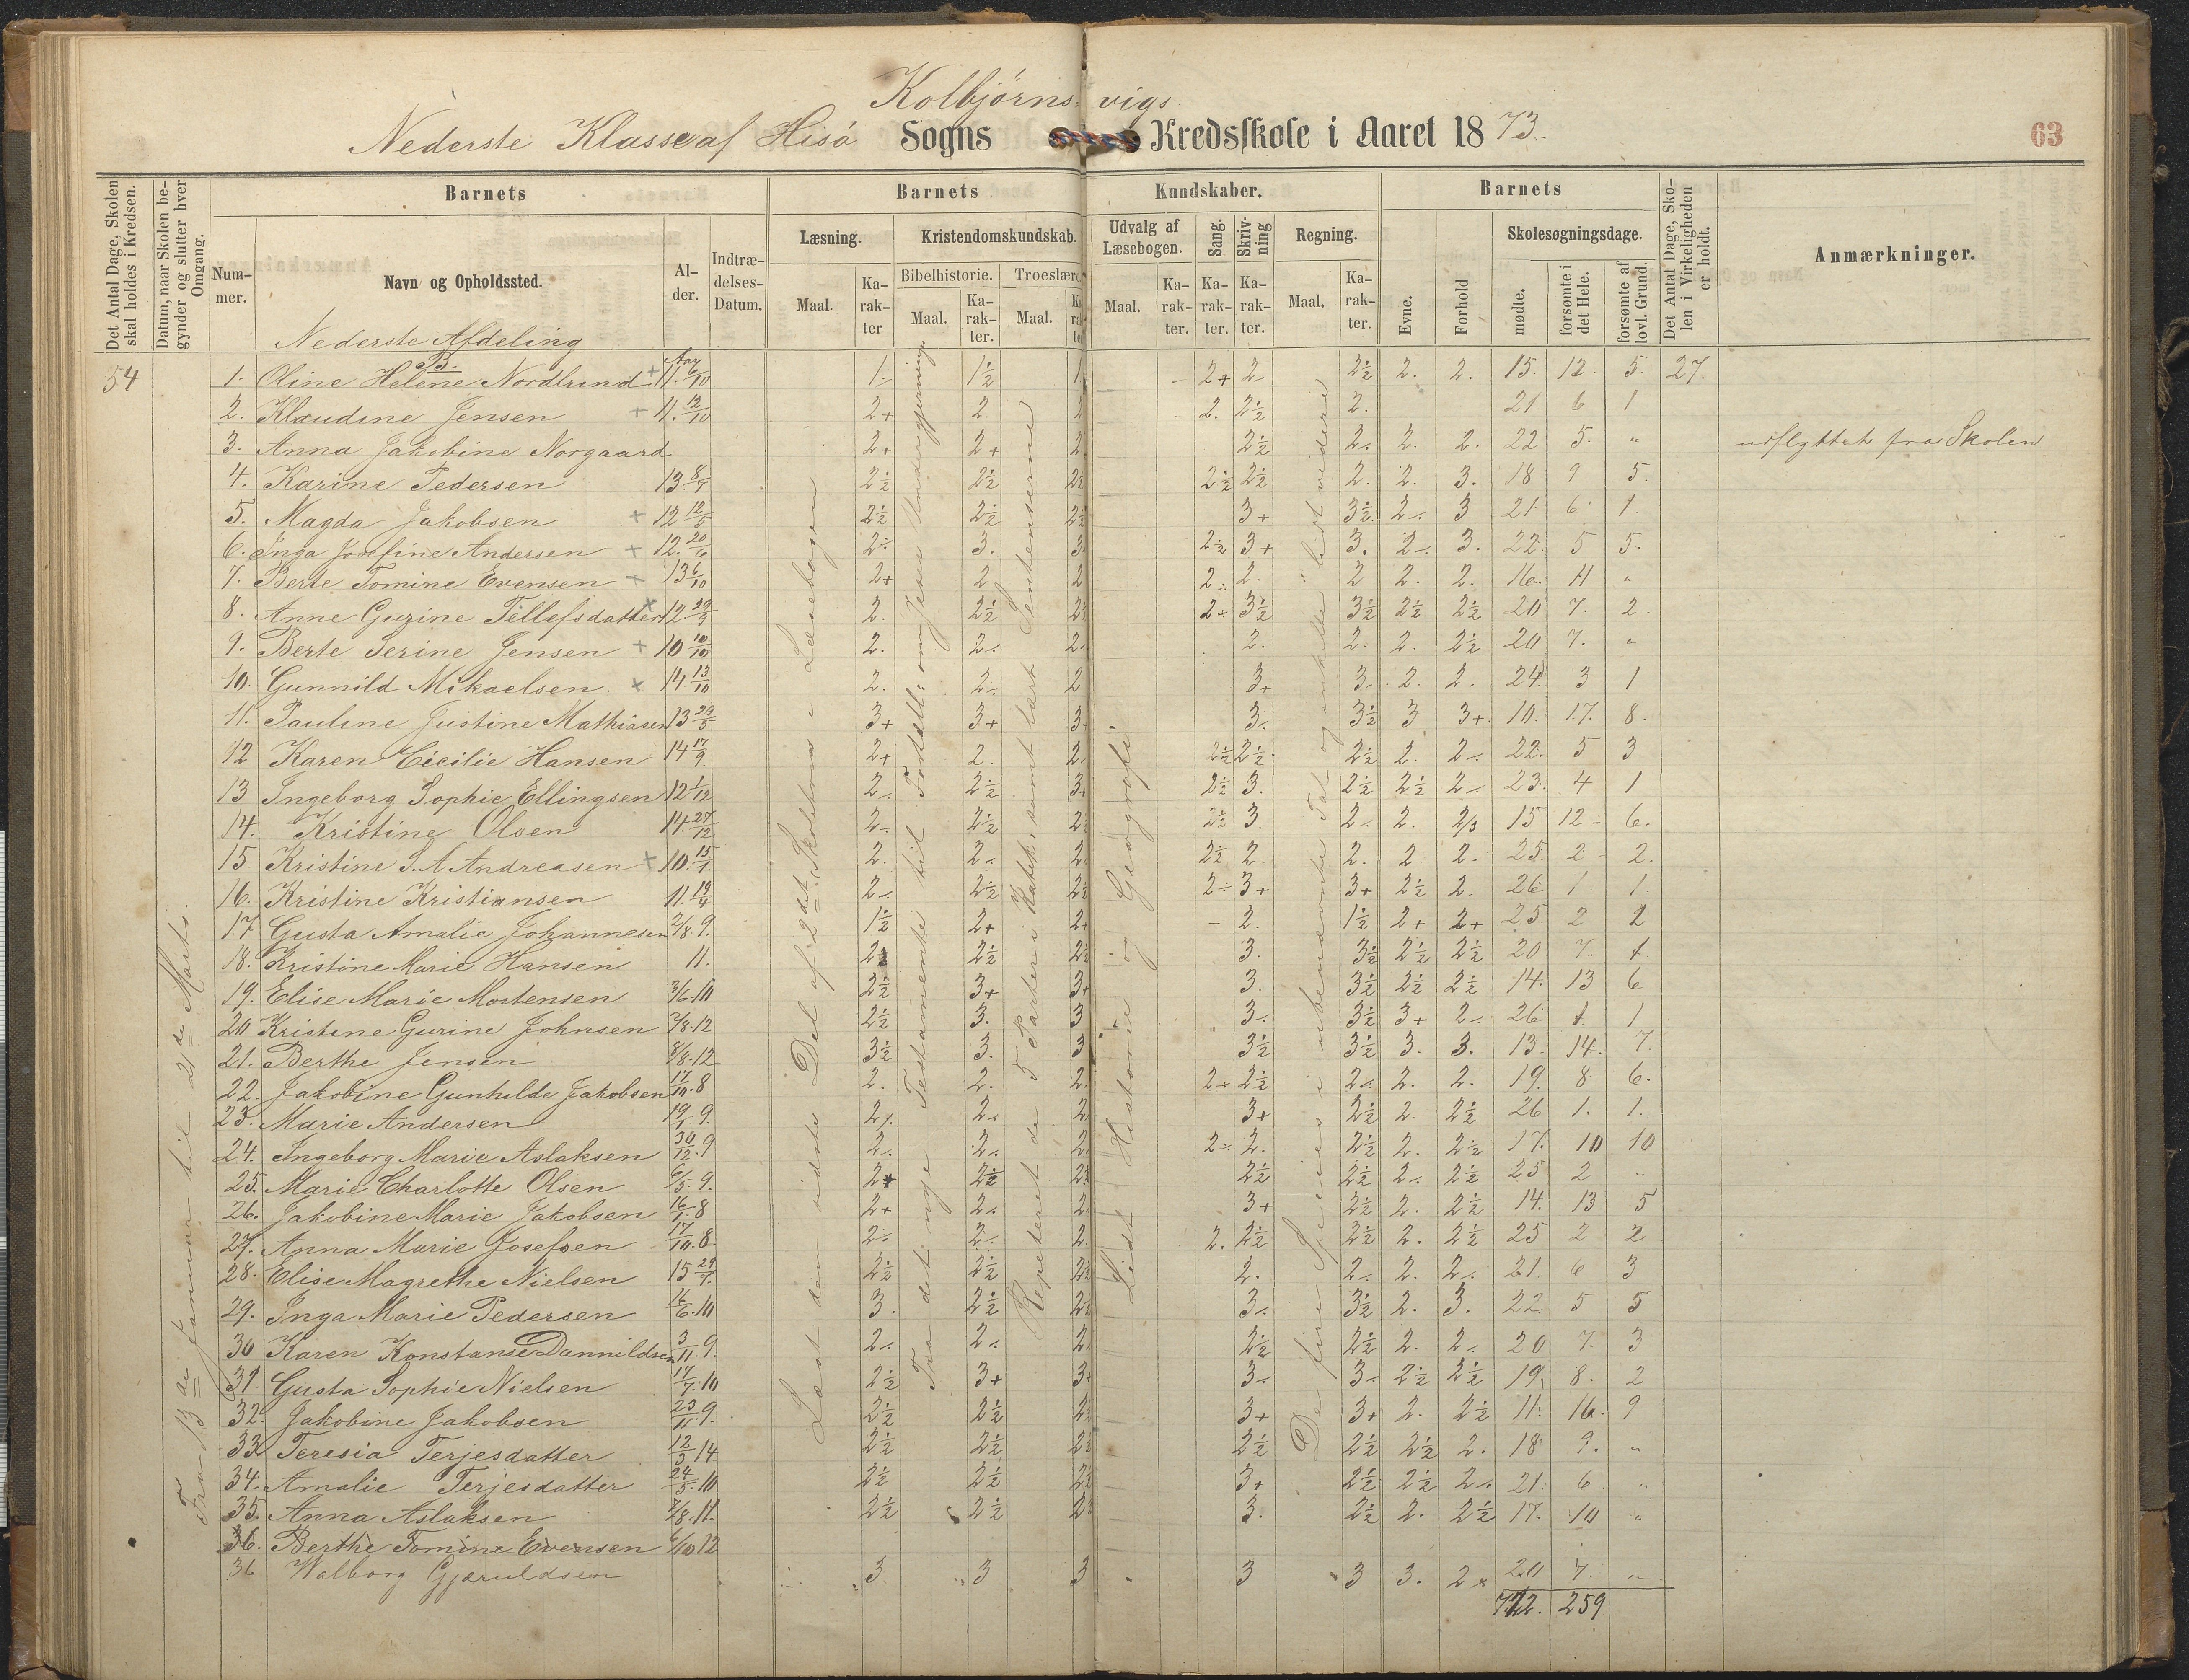 Kolbjörns- vigs
Nederste Klasse af Hisö Sogns Kredsskole i Aaret 1873.
63
Det Antal Dage, Skolen skal holdes i Kredsen.
Datum, naar Skolen begynder og slutter hver Omgang.
Barnets
Nummer.
Navn og Opholdssted.
Alder.
Indtrædelses-Datum.
Barnets Kundskaber.
Læsning. Kristendomskundskab. Udvalg af Læsebogen. Sang. Skrivning Regning.
Bibelhistorie. Troeslære
Maal. Karakter Maal. Karakter. Maal. Maal. Karakter. Karakter. Karakter. Maal. Karakter.
Barnets
Evne. Forhold Skolesøgningsdage.
mødte. forsømte i det Hele. forsømte af lovl. Grund.
Det Antal Dage, Skolen i Virkeligheden er holdt.
Anmærkninger.
Nederste Afdeling
B. Aar
54 1. Oline Helene Nordlund + 11. 6/10 1. 1½ 1 2+ 2 2½ 2. 2. 15. 12. 5. 27.
2. Klaudine Jensen + 11. 12/10 2+ 2. 2 2. 2½ 2. 21. 6 1
3. Anna Jakobine Norgaard 2+ 2+ 2 2½ 2. 2. 2. 22 5. " udflyttet fra Skolen
4. Karine Pedersen 13. 8/1 2½ 2½ 2½ 2½ 2½ 2. 2. 3. 18 9 5.
5. Magda Jakobsen + 12 12/5 2½ 2½ 2½ 3+ 3½ 2. 3 21 6 1
6. Inga Josefine Andersen + 12. 20/6 2÷ 3. 3 2½ 3+ 3. 2. 3. 22. 5 5.
7. Berte Tomine Evensen + 13 6/10 2+ 2 2 2. 2. 2 2. 2. 16. 11 "
8. Anne Gurine Tellefsdatter + 12. 29/9 2. 2½ 2 2÷ 3½ 3½ 2½ 2½ 20 7. 2.
9. Berte Serine Jensen + 10 10/10 2. 2. 2. 2. 2. 2. 2½ 20 7. "
10. Gunnild Mikaelsen + 14 13/10 2. 2. 2 3+ 3. 2. 2. 24. 3 1
11. Pauline Justine Mathiasen 13 29/5 3+ 3+ 3 3. 3½ 3 3+ 10. 17. 8.
12 Karen Cicilie Hansen 14 17/9 2+ 2. 2. 2½ 2½ 2½ 2. 2. 22. 5 3
13 Ingeborg Sophie Ellingsen 12 1/12 2. 2½ 3+ 2½ 3. 2½ 2½ 2. 23. 4 1
14. Kristine Olsen 14. 27/12 2. 2½ 2 2½ 3. 2. 2. 2/3 15 12 6.
15. Kristine S. A Andreasen + 10. 15/1 2. 2. 2 2½ 2. 2. 2. 2. 25. 2 2.
16. Kristine Kristiansen 11. 19/4 2. 2½ 2½ 2÷ 3+ 3+ 2½ 2. 26 1. 1.
17 Gusta Amalie Johannesen 2/8 9. 1½ 2+ 2 2. 1½ 2+ 2+ 25 2 2
18. Kristine Marie Hansen 11. 2 2½ 2½ 3. 3½ 2½ 2½ 20 7. 1
19. Elise Marie Mortensen 3/6. 10 2½ 3+ 3+ 3. 3½ 2½ 2½ 14. 13 6
20 Kristine Gurine Johnsen 7/8. 12 2½ 3. 3 3. 3½ 3+ 2. 26 1. 1
21. Berthe Jensen 8/8. 12 3½ 3. 3 3½ 3½ 3. 3. 13. 14. 7.
22. Jakobine Gunhilde Jakobsen 17/10. 8 2. 2. 2. 2+ 2½ 2. 2. 2. 19. 8 6.
23. Marie Andersen 19/1. 9. 2. 2. 2 3+ 2½ 2. 2½ 26 1. 1.
24. Ingeborg Marie Aslaksen 30/12. 9 2. 2. 2. 2÷ 2. 2½ 2. 2½ 17. 10 10
25. Marie Charlotte Olsen 6/5. 9. 2+ 2½ 2½ 2½ 2½ 2. 2½ 25 2 "
26. Jakobine Marie Jakobsen 16/1. 8 2+ 2. 2 3+ 2½ 2. 2½ 14. 13 5
27. Anna Marie Josefsen 17/10. 8. 2. 2. 2. 2. 2½ 3½ 2. 2½ 25 2 2
28. Elise Magrethe Nielsen 15 29/7. 2½ 2½ 2½ 2. 2. 2. 2. 21. 6 3
29. Inga Marie Pedersen 16/6. 10 3. 2½ 2½ 3. 3½ 2. 3. 22 5 5
30 Karen Konstanse Dannildsen 3/11. 9. 2. 2. 2. 2½ 2½ 2. 2. 20 7. 3
31. Gusta Sophie Nielsen 17/7. 10 2½ 3+ 3+ 3. 3. 2½ 2½ 19. 8. 2
32. Jakobine Jakobsen 23/11. 9. 2½ 2½ 2½ 3+ 3+ 2. 2½ 11. 16. 9
33 Teresia Terjesdatter 12/3 14 2½ 2½ 2 2½ 2½ 2½ 2. 18 9. "
34. Amalie Terjesdatter 24/5. 10 2½ 2½ 2½ 3+ 2½ 2½ 2. 21. 6 "
35. Anna Aslaksen 7/8. 11. 2½ 2½ 2 3. 2½ 2. 2½ 17. 10 "
36. Berthe Tomine Evensen 6/10 12
36 Walborg Gjeruldsen 3 3 3 3 3 3. 2 20 7. "
722. 259
Fra 13de Januar til 21de Marts.
Læst den sidste Del af 2det Skoletrin i Læsebogen
Fra det nye Testamente til Fortæll: om Jesu Undergjerninger
Repeteret de 5 Parter i Katek. samt lært Sentenserne
Lidt Historie og Geografi.
De fire Species i ubenævnte Tal og enkelte lidt videre